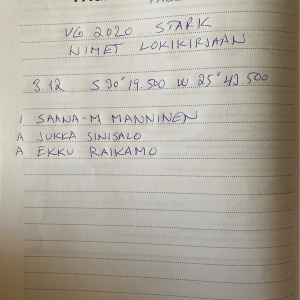 VG 2020 STARK
NIMET LOKIKIRJAAN
3.12 S 30° 19.500 W 25° 43.500
1 SAANA-M MANNINEN
A JUKKA SINISALO
A EKKU RAIKAMO